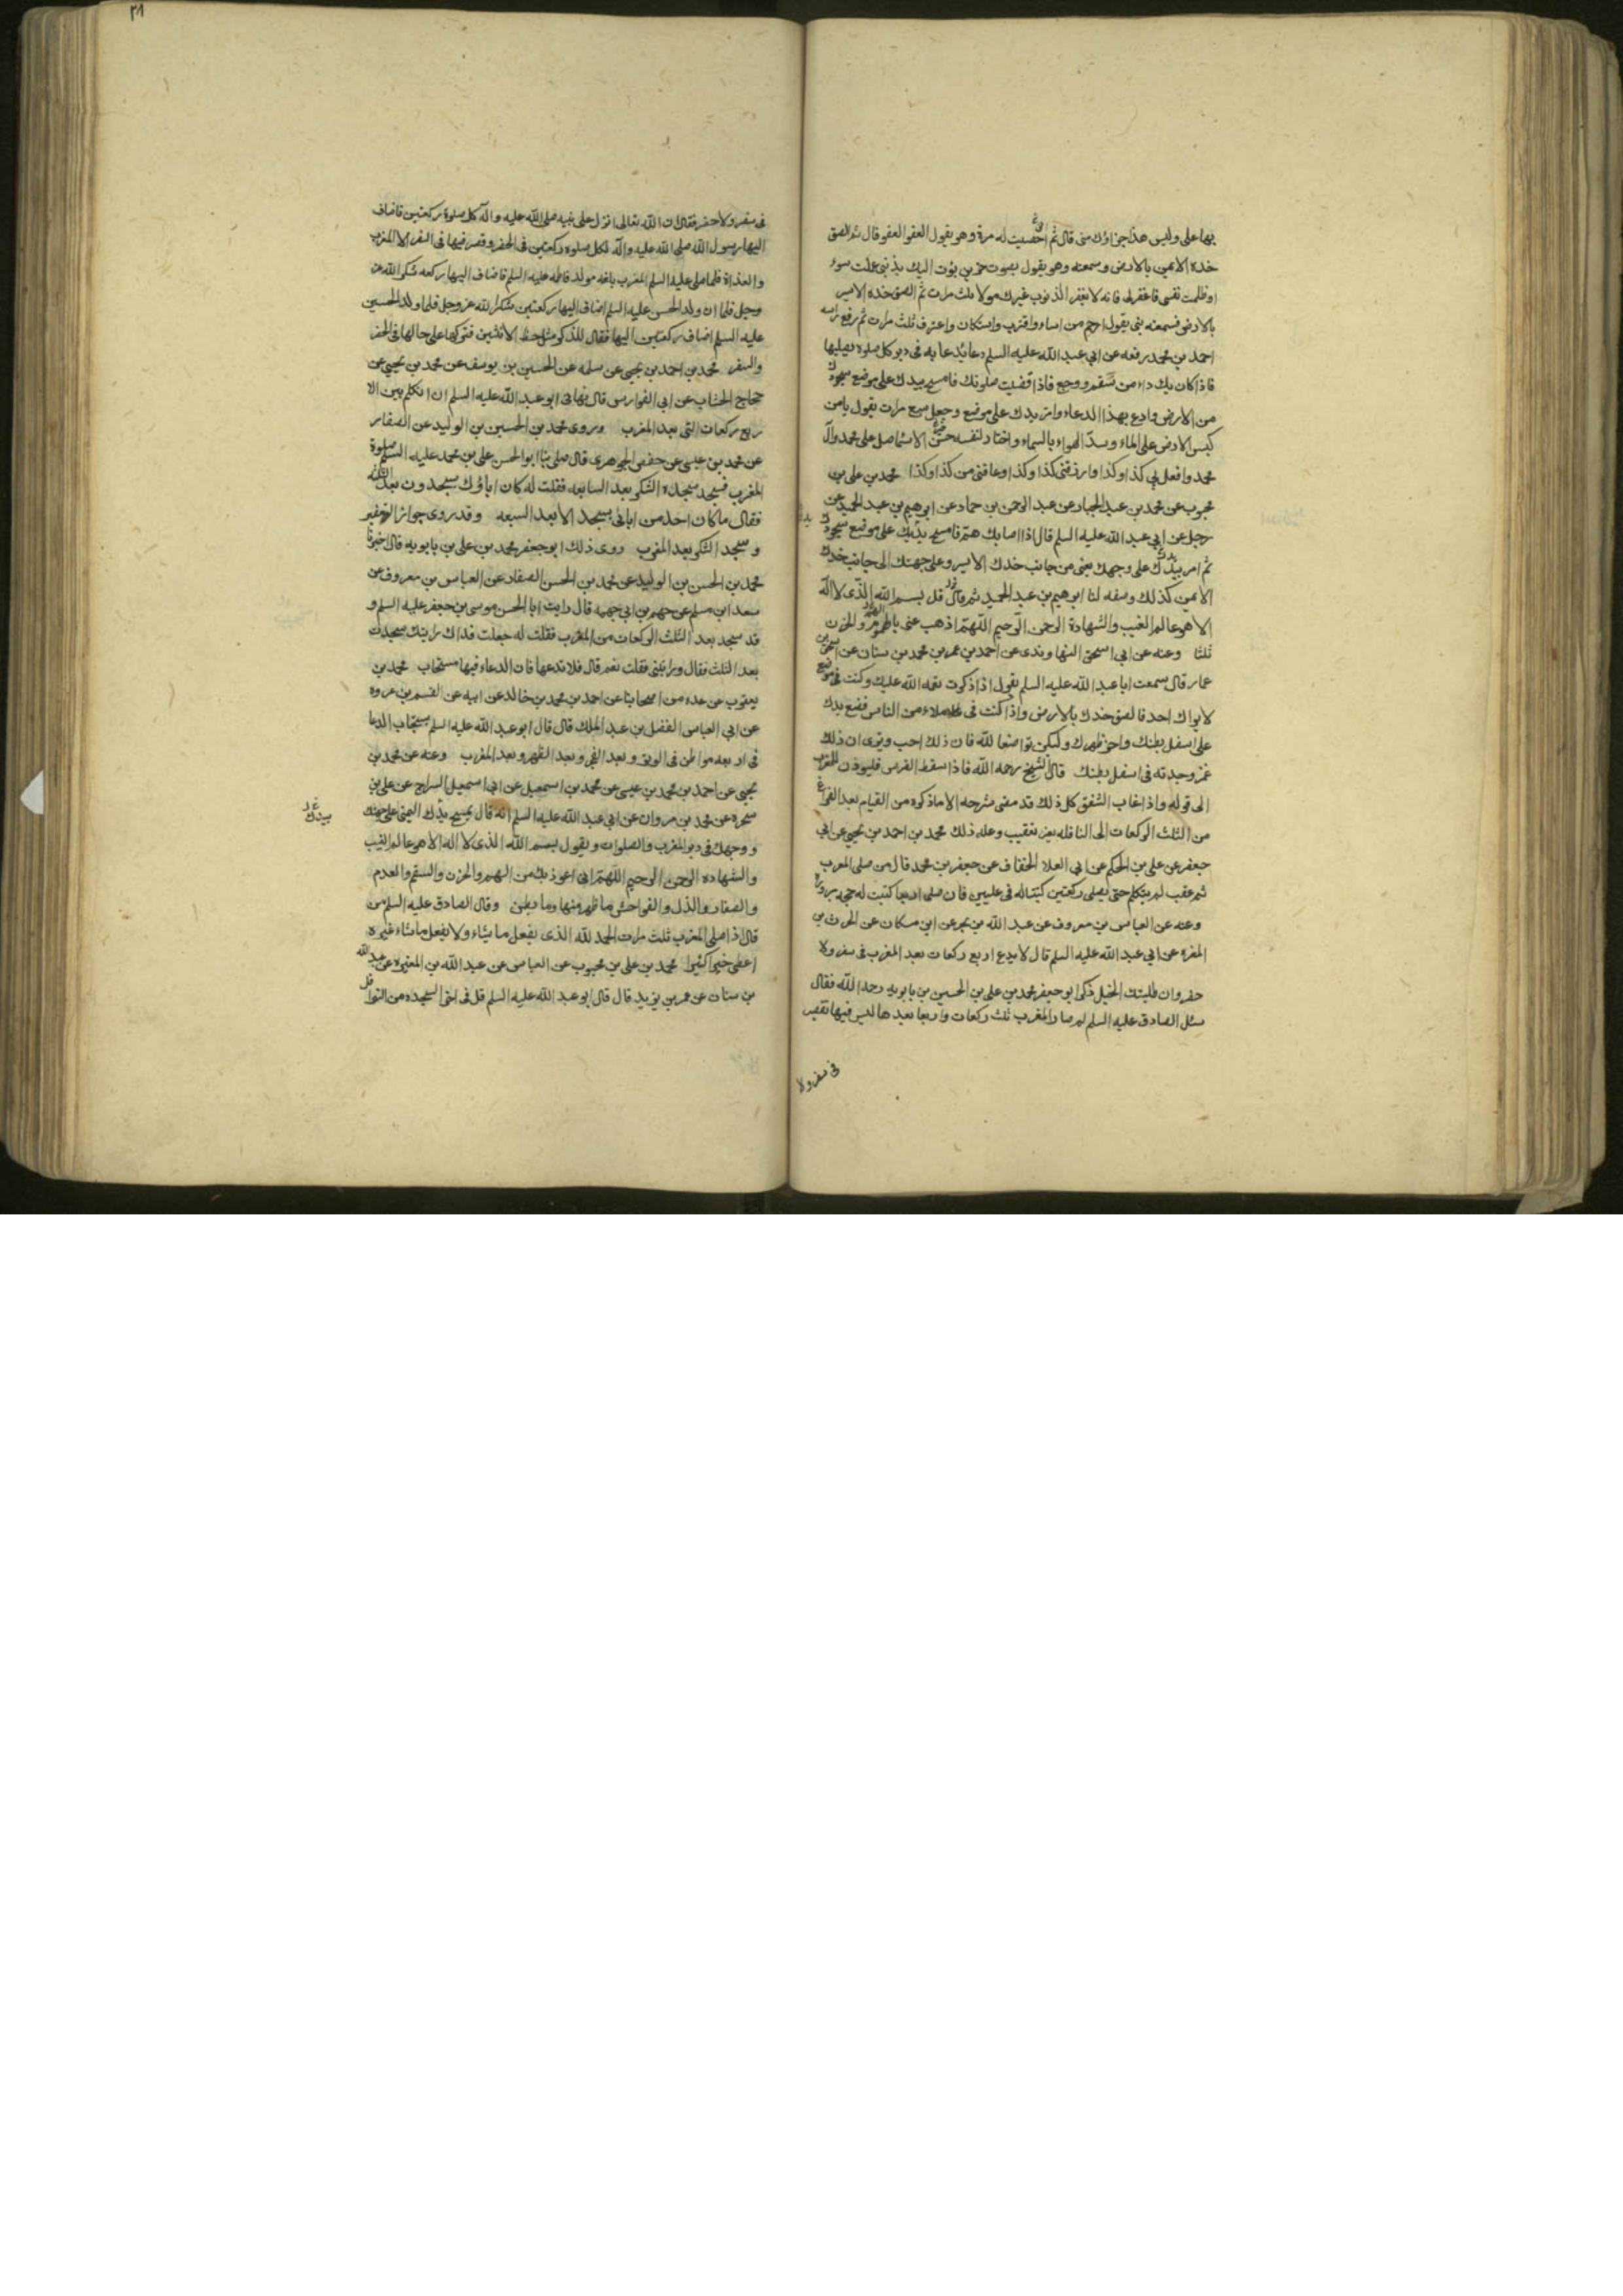 بها على وليس هذا جزاؤك منى قال ثم احصيت له مرة وهو يقول العفو العفو قال ثم الصق
خده الايمن بالارض وسمعته وهو يقول بصوت حزين بؤت اليك بذنبى عملت سوء
او ظلمت نفسى فاغفر لى فانه لا يغفر الذنوب غيرك مولاى ثلث مرات ثم الصق خده الايسر
بالارض فسمعته يقول ارحم من اساء واقترف واستكان واعترف ثلث مرات ثم رفع راسه
احمد بن محمد رفعه عن ابي عبد الله عليه السلم دعا يدعا به فى دبر كل صلوه يصليها
فاذا كان بك داء من سقم ووجع فاذا قضيت صلوتك فامسح بيدك على موضع سجودك
من الارض وادع بهذا الدعاء وامر يدك على موضع وجعك سبع مرات يقول يا من
كبس الارض على الماء وسدّ الهواء بالسماء واختار لنفسه احسن الاسماء صل على محمد وآل
محمد وافعل بي كذا وكذا وارزقنى كذا وكذا وعافنى من كذا وكذا محمد بن على بن
محبوب عن محمد بن عبد الجبار عن عبد الرحمن بن حماد عن ابرهيم بن عبد الحميد عن
رجل عن ابي عبد الله عليه السلم قال اذا اصابك هم فامسح يدك على موضع سجودك
ثم امر يدك على وجهك يعنى من جانب خدك الايسر وعلى جبهتك الى جانب خدك
الايمن كذلك وصفه لنا ابرهيم بن عبد الحميد ثم قال قل بسم الله الذى لا اله
الا هو عالم الغيب والشهادة الرحمن الرحيم اللهم اذهب عنى الهم والحزن
ثلثا وعنه عن ابي اسحق النهاوندى عن احمد بن عمر بن محمد بن سنان عن اسحق بن
عمار قال سمعت ابا عبد الله عليه السلم يقول اذا ذكرت نعمه الله عليك وكنت فى موضع
لا يراك احد فالصق خدك بالارض واذا كنت فى ملاء من الناس فضع يدك
على اسفل بطنك واحن ظهرك وليكن تواضعا لله فان ذلك احب ويرى ان ذلك
غمز وجدته فى اسفل بطنك قال الشيخ رحمه الله فاذا سقط القرص فليوذن للمغرب
الى قوله واذا غاب الشفق كل ذلك قد مضى شرحه الا ما ذكره من القيام بعد الفراغ
من الثلث الركعات الى النافله بغير تعقيب وعله ذلك محمد بن احمد بن يحيى عن ابي
جعفر عن على بن الحكم عن ابي العلا الخفاف عن جعفر بن محمد قال من صلى المغرب
ثم عقب لم يتكلم حتى يصلى ركعتين كتبتا له فى عليين فان صلى اربعا كتبت له حجه مبروره
وعنه عن العباس بن معروف عن عبد الله بن بحر عن ابن مسكان عن الحرث بن
المغره عن ابي عبد الله عليه السلم قال لا تدع اربع ركعات بعد المغرب فى سفر ولا
حضر وان طلبتك الخيل ذكر ابو جعفر محمد بن على بن الحسين بن بابويه رحمه الله فقال
سئل الصادق عليه السلم لم صار المغرب ثلث ركعات واربعا بعدها ليس فيها تقصير
فى سفر ولا
٢٨
فى سفر ولا حضر فقال ان الله تعالى انزل على نبيه صلى الله عليه واله كل صلوة ركعتين فاضاف
اليها رسول الله صلى الله عليه واله لكل صلوه ركعتين فى الحضر وقصر فيها فى السفر الا المغرب
والغداة فلما صلى عليه السلم المغرب بلغه مولد فاطمه عليه السلم فاضاف اليها ركعه شكرا لله عز
وجل فلما ان ولد الحسن عليه السلم اضاف اليها ركعتين شكرا لله عز وجل فلما ولد الحسين
عليه السلم اضاف ركعتين اليها فقال للذكر مثل حظ الانثيين فتركها على حالها فى الحضر
والسفر محمد بن احمد بن يحيى عن سلمه عن الحسين بن يوسف عن محمد بن يحيى عن
حجاج الخشاب عن ابي الفوارس قال نهانى ابو عبد الله عليه السلم ان اتكلم بين الا
ربع ركعات التى بعد المغرب وروى محمد بن الحسين بن الوليد عن الصفار
عن محمد بن عيسى عن حفص الجوهرى قال صلى بنا ابو الحسن على بن محمد عليه السلم صلوة
المغرب فسجد سجدة الشكر بعد السابعه فقلت له كان اباؤك يسجدون بعد الثلثه
فقال ما كان احد من ابائى يسجد الا بعد السبعه وقد روى جواز التعفير
وسجد الشكر بعد المغرب روى ذلك ابو جعفر محمد بن على بن بابويه قال اخبرنا
محمد بن الحسن بن الوليد عن محمد بن الحسن الصفار عن العباس بن معروف عن
سعد ابن مسلم عن جهم بن ابي جهمه قال رايت ابا الحسن موسى بن جعفر عليه السلم و
قد سجد بعد الثلث الركعات من المغرب فقلت له جعلت فداك رايتك سجدت
بعد الثلث فقال ورايتنى فقلت نعم قال فلا تدعها فان الدعاء فيها مستجاب محمد بن
يعقوب عن عده من اصحابنا عن احمد بن محمد بن خالد عن ابيه عن القسم بن عروه
عن ابي العباس الفضل بن عبد الملك قال قال ابو عبد الله عليه السلم يستجاب الدعا
فى اربعه مواطن فى الوتر وبعد الفجر وبعد الظهر وبعد المغرب وعنه عن محمد بن
يحيى عن احمد بن محمد بن عيسى عن محمد بن اسمعيل عن ابي اسمعيل السراج عن على بن
شجره عن محمد بن مروان عن ابي عبد الله عليه السلم انه قال تمسح يدك اليمنى على جبهتك
بيدك
ووجهك فى دبر المغرب والصلوات ويقول بسم الله الذى لا اله الا هو عالم الغيب
والشهاده الرحمن الرحيم اللهم انى اعوذ بك من الهم والحزن والسقم والعدم
والصغار والذل والفواحش ما ظهر منها وما بطن وقال الصادق عليه السلم من
قال اذا صلى المغرب ثلث مرات الحمد لله الذى يفعل ما يشاء ولا يفعل ما يشاء غيره
اعطى خيرا كثيرا محمد بن على بن محبوب عن العباس عن عبد الله بن المغيره عن عبد الله
بن سنان عن عمر بن يزيد قال قال ابو عبد الله عليه السلم قل فى اخر السجده من النوافل